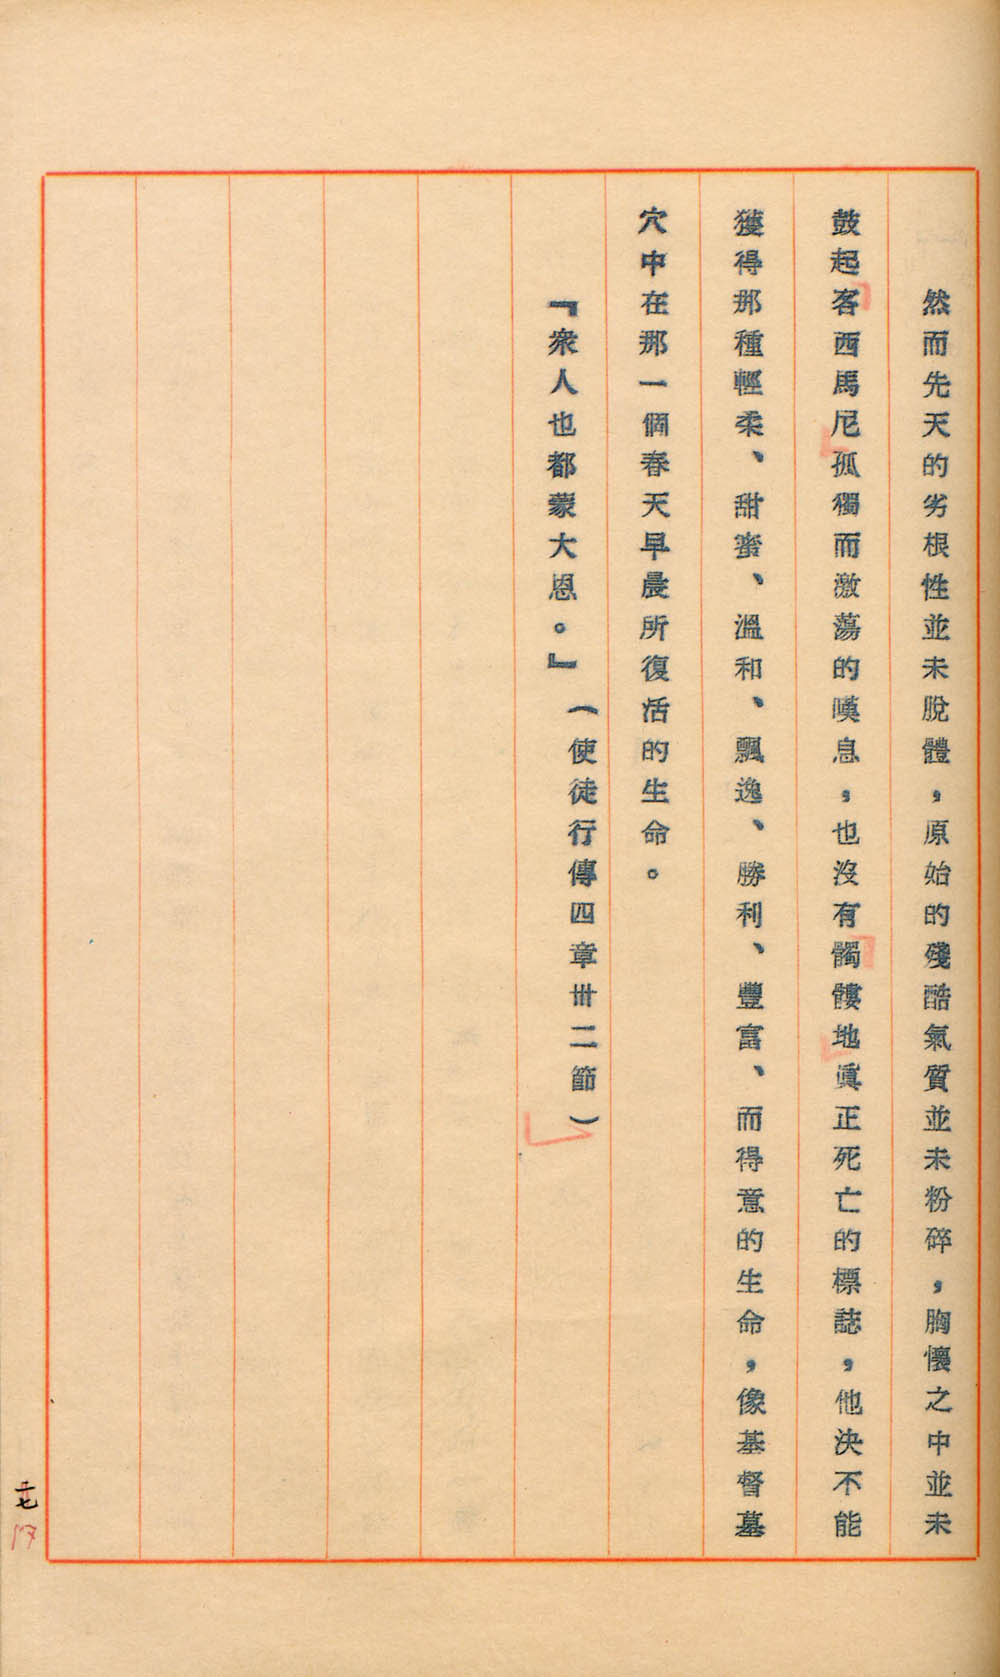 然而先天的劣根性並未脫體，原始的殘酷氣質並未粉碎，胸懷之中並未
鼓起「客西馬尼」孤獨而激蕩的嘆息，也沒有「髑髏地」眞正死亡的標誌，他決不能
獲得那種輕柔、甜蜜、溫和、飄逸、勝利、豐富、而得意的生命，像基督墓
穴中在那一個春天早晨所復活的生命。
『衆人也都蒙大恩。』（使徒行傳四章卅二節）」
二七
17